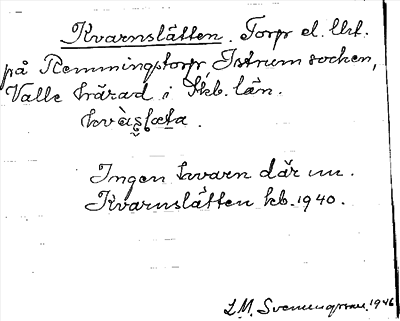 Kvarnslätten. Torp el. lht.
på Remmingstorp, Istrum socken,
Valle härad i Skb. län.
kvàs̡læta.
Ingen kvarn där nu.
Kvarnslätten kb. 1940.
L.M. Svenungsson, 1946